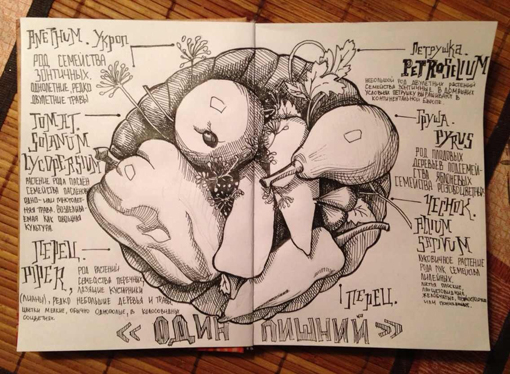 ANETHUM. УКРОП
РОД СЕМЕЙСТВА
ЗОНТИЧНЫХ.
ОДНОЛЕТНИЕ, РЕДКО
ДВУЛЕТНИЕ ТРАВЫ
ТОМАТ.
SOLANUM
LYCOPERSICUM
РАСТЕНИЕ РОДА ПАСЛЕН
СЕМЕЙСТВА ПАСЛЕНОВЫХ
ОДНО- ИЛИ МНОГОЛЕТ-
НЯЯ ТРАВА. ВОЗДЕЛЫВА-
ЕМАЯ КАК ОВОЩНАЯ
КУЛЬТУРА.
ПЕРЕЦ.
PIPER.
РОД РАСТЕНИЙ
СЕМЕЙСТВА ПЕРЕЧНЫХ
ЛАЗЯЩИЕ КУСТАРНИКИ
(ЛИАНЫ), РЕДКО НЕБОЛЬШИЕ ДЕРЕВЬЯ И ТРАВЫ
ЦВЕТКИ МЕЛКИЕ, ОБЫЧНО ОДНОПОЛЫЕ, В КОЛОСОВИДНЫХ
СОЦВЕТИЯХ.
ПЕТРУШКА.
PETROSELIUM
НЕБОЛЬШОЙ РОД ДВУЛЕТНИХ РАСТЕНИЙ
СЕМЕЙСТВА ЗОНТИЧНЫЕ. В ДОМАШНИХ
УСЛОВИЯХ ПЕТРУШКУ ВЫРАЩИВАЮТ В
ГРУША.
PYRUS
РОД ПЛОДОВЫХ
ДЕРЕВЬЕВ ПОДСЕМЕЙ-
СТВА ЯБЛОНЕВЫХ
СЕМЕЙСТВА РОЗОЦВЕТНЫХ
ЧЕСНОК.
ALIUM
SATIVUM
ЛУКОВИЧНОЕ РАСТЕНИЕ
РОДА ЛУК СЕМЕЙСТВА
ЛИЛЕЙНЫХ
ПЕРЕЦ.
«ОДИН ЛИШНИЙ»